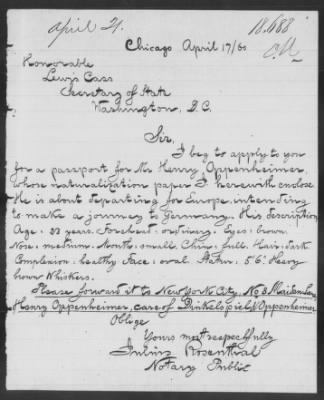 April 21.
18.688
Chicago April 17/60
Honorable
Lewis Cass
Secretary of State
Washington, D.C.
Sir.
I beg to apply to you
for a passport for Mr Henry Oppenheimer,
whose naturalization paper I herewith enclose.
He is about departing for Europe, intending
to make a journey to Germany. His description
Age: 33 years. Forehead: ordinary. Eyes: brown.
Nose: medium. Mouth: small. Chin: full. Hair: dark
Complexion: healthy Face: oval. Statur: 5'6" Heavy
brown Whiskers.
Please forward it to New York City, No 3 Maiden Lane
Henry Oppenheimer, care of & Oppenheimer
Oblige
Yours most respectfully
Julius Rosenthal
Notary Public